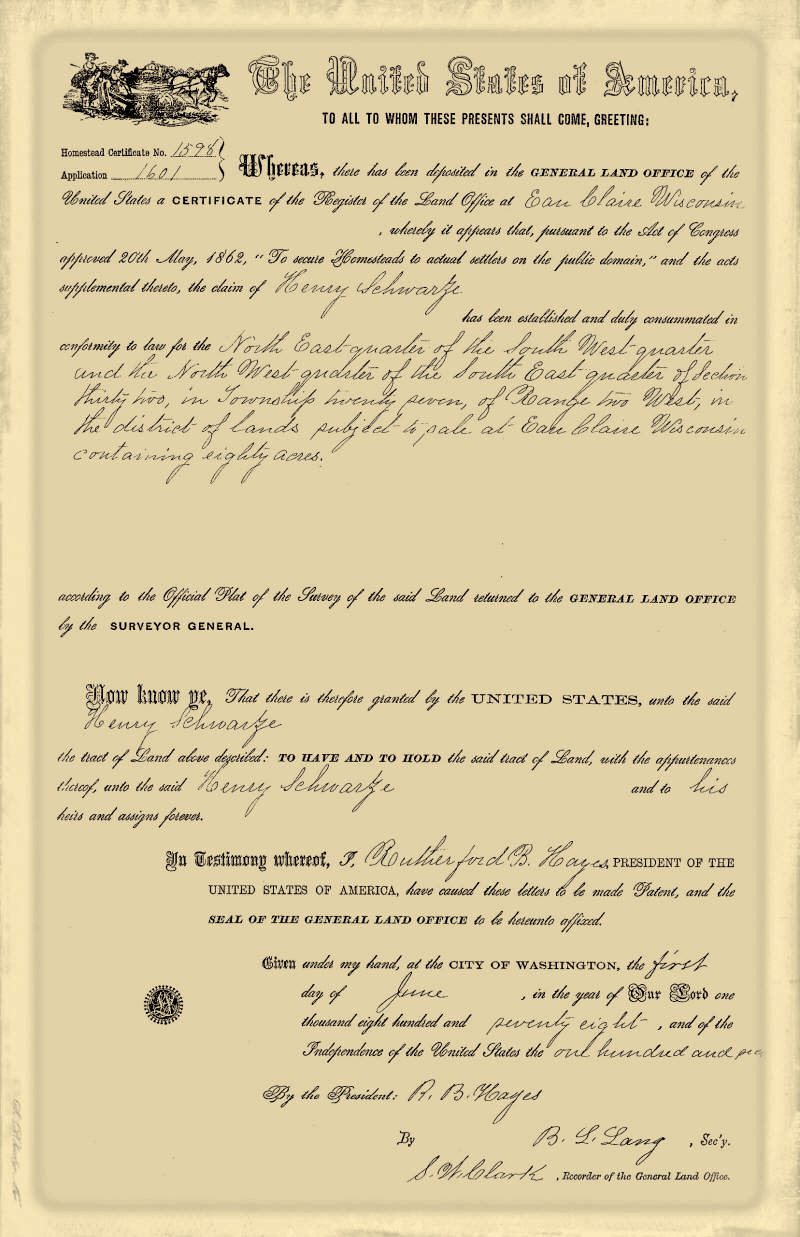 The United States of America,
TO ALL TO WHOM THESE PRESENTS SHALL COME, GREETING:
Homestead Certificate No. 1598
Application 1601
Whereas, there has been deposited in the GENERAL LAND OFFICE of the
United States a CERTIFICATE of the Register of the Land Office at Eau Claire Wisconsin
, whereby it appears that, pursuant to the Act of Congress
approved 20th May, 1862, "To secure Homesteads to actual settlers on the public domain," and the acts
supplemental thereto, the claim of Henry Schwartze
has been established and duly consummated in
conformity to law for the North East quarter of the South West quarter
and the North West quarter of the South East quarter of Section
thirty two, in Township twenty seven, of Range two West, in
the district of lands subject to sale at Eau Claire Wisconsin
containing eighty acres.
according to the Official Plat of the Survey of the said Land returned to the GENERAL LAND OFFICE
by the SURVEYOR GENERAL.
Now know ye, That there is therefore granted by the UNITED STATES, unto the said
Henry Schwartze
the tract of Land above described: TO HAVE AND TO HOLD the said tract of Land, with the appurtenances
thereof, unto the said Henry Schwartze and to his
heirs and assigns forever.
In Testimony whereof, I, Rutherford B. Hayes, PRESIDENT OF THE
UNITED STATES OF AMERICA, have caused these letters to be made Patent, and the
SEAL OF THE GENERAL LAND OFFICE to be hereunto affixed.
Given under my hand, at the CITY OF WASHINGTON, the first
day of June , in the year of Our Lord one
thousand eight hundred and seventy eight , and of the
Independence of the United States the one hundred and
By the President: R. B. Hayes
By B. L. Lang , Sec'y.
S. W. Clark , Recorder of the General Land Office.